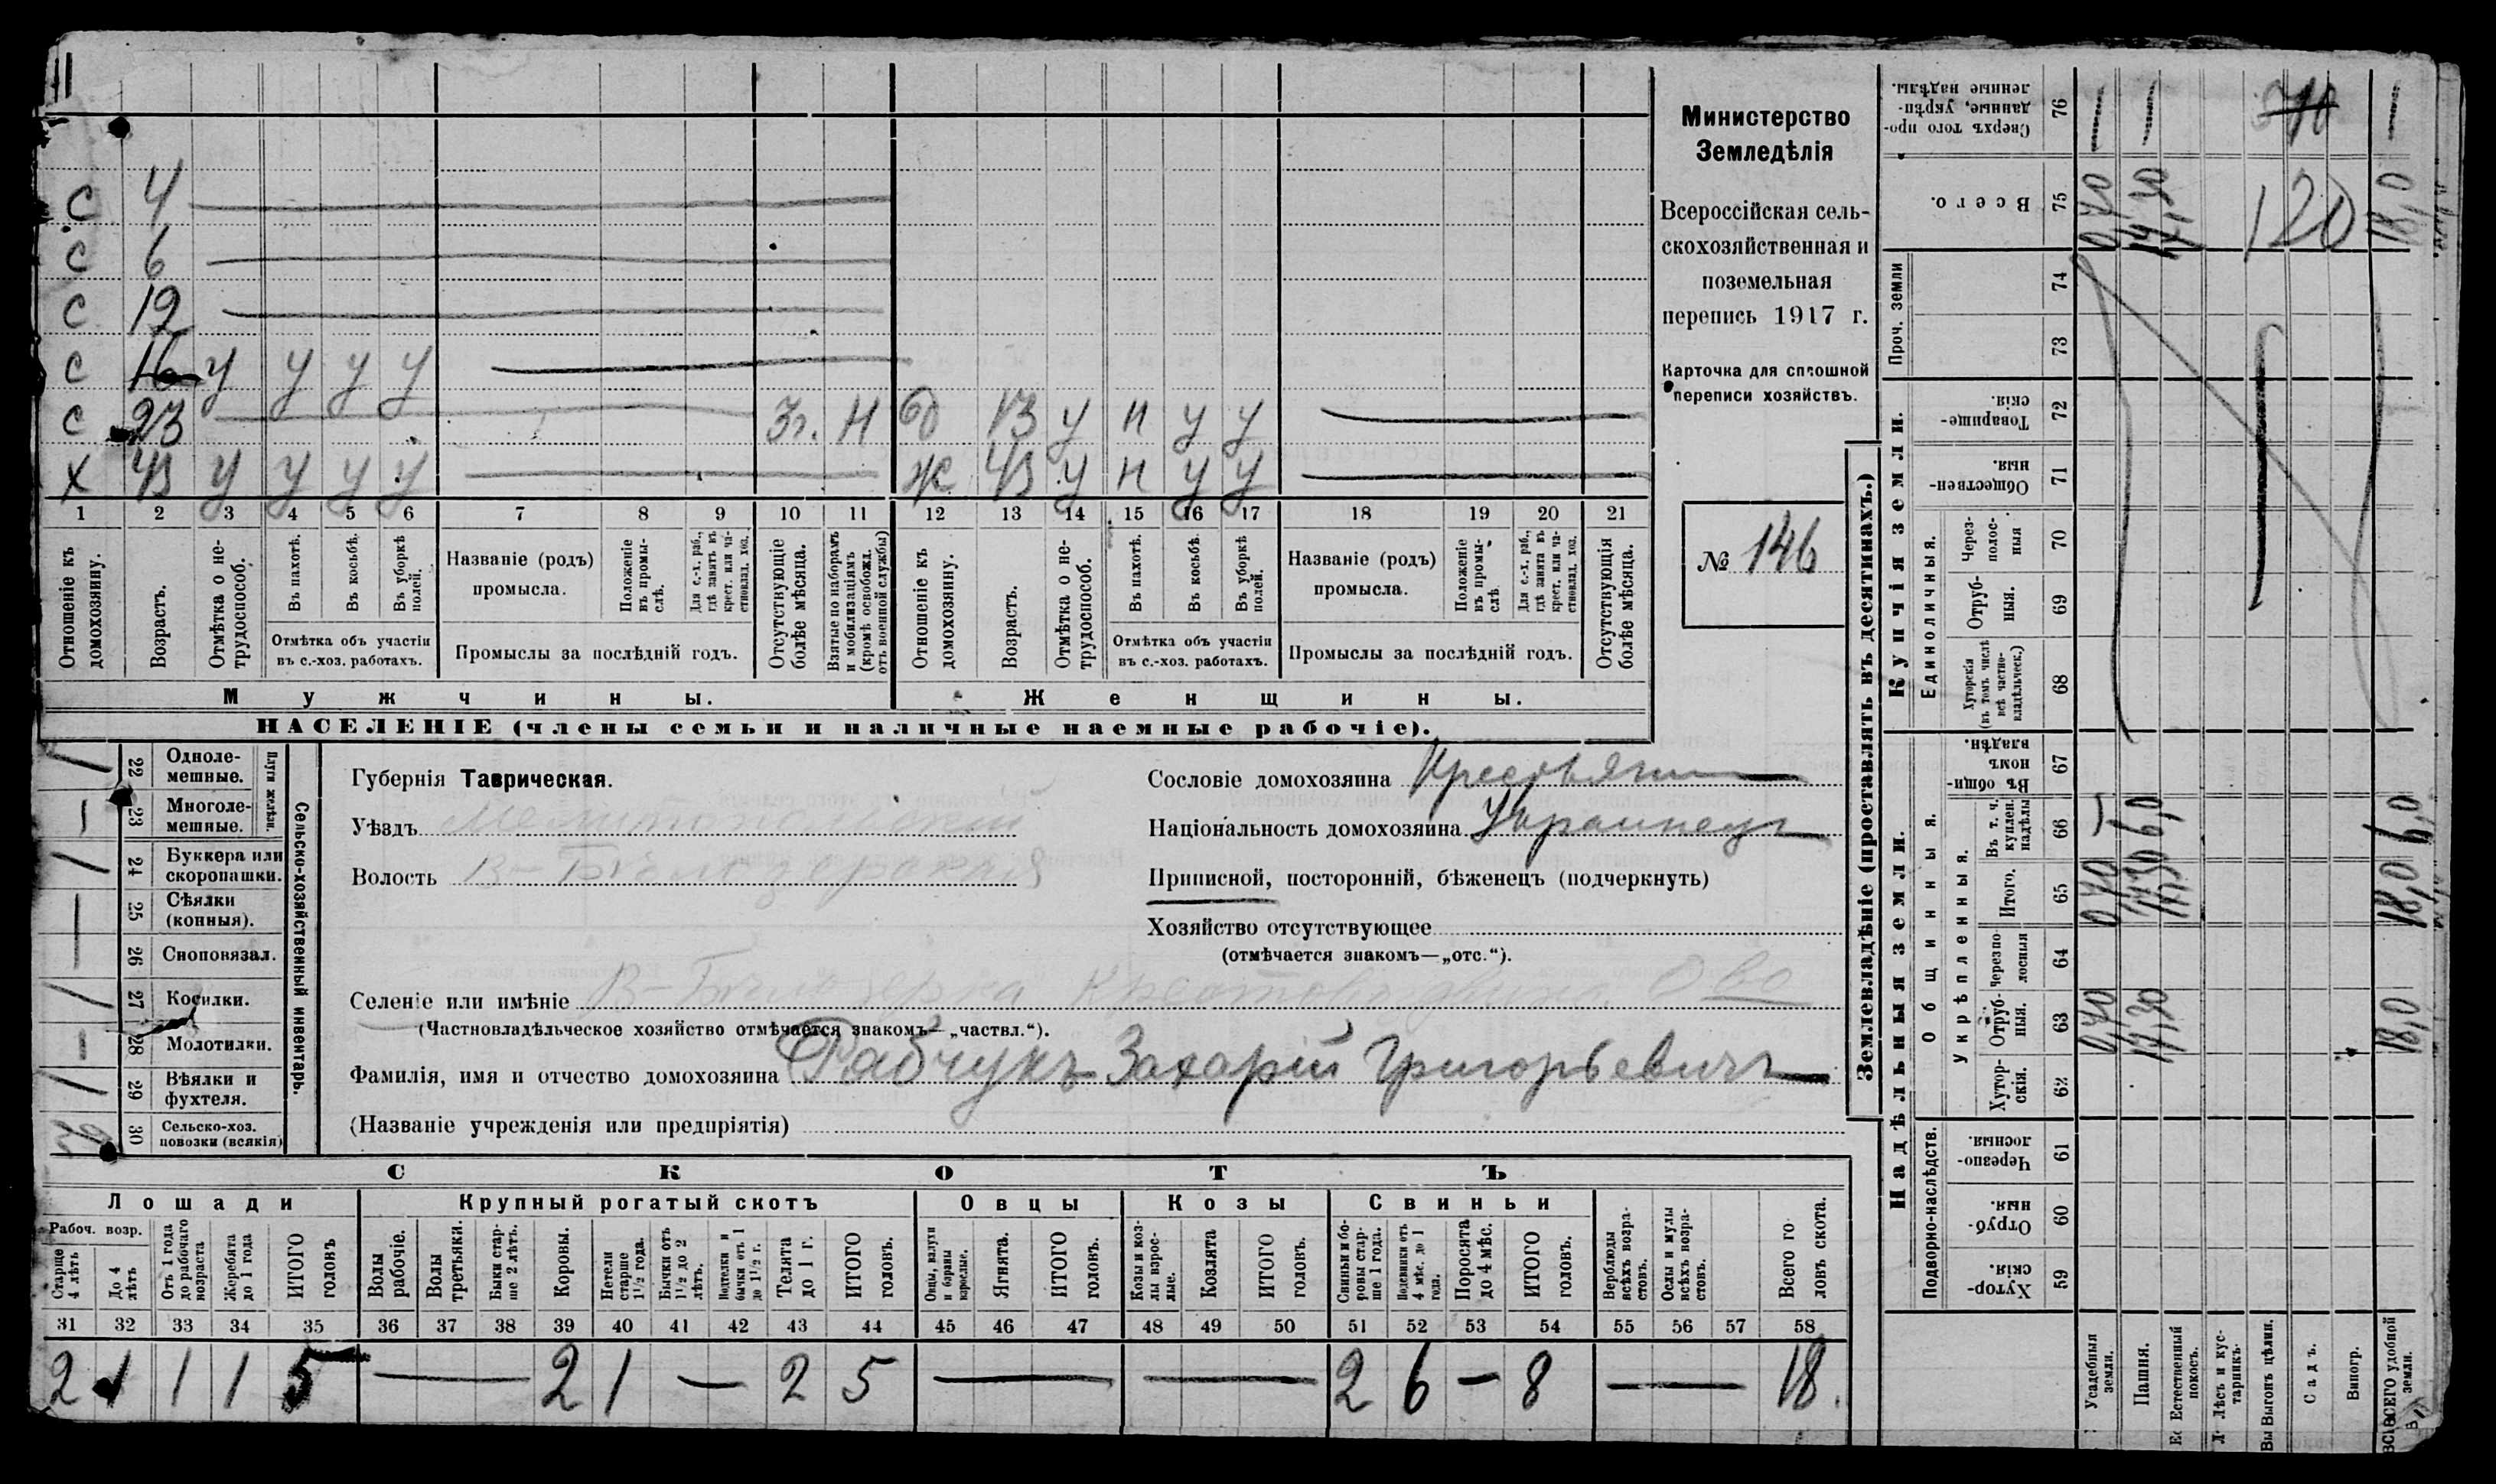 11
С 4
С 6
С 12
С 16 У У У У
С 23 Зг. Н Д 13 У Н У У
Х 43 У У У У Ж 43 У Н У У
1 2 3 4 5 6 7 8 9 10 11 12 13 14 15 16 17 18 19 20 21
Отношеніе къ домохозяину.
Возрастъ.
Отмѣтка о нетрудоспособ.
Въ пахотѣ.
Въ косьбѣ.
Въ уборкѣ полей.
Отмѣтка объ участіи въ с.-хоз. работахъ.
Названіе (родъ) промысла.
Положеніе въ промыслѣ.
Для с.-х. раб., гдѣ занятъ въ крест. или частновлад. хоз.
Промыслы за послѣдній годъ.
Отсутствующіе болѣе мѣсяца.
Взятые по наборамъ и мобилизаціямъ (кромѣ освобожд. отъ военной службы)
Отношеніе къ домохозяину.
Возрастъ.
Отмѣтка о нетрудоспособ.
Въ пахотѣ.
Въ косьбѣ.
Въ уборкѣ полей.
Отмѣтка объ участіи въ с.-хоз. работахъ.
Названіе (родъ) промысла.
Положеніе въ промыслѣ
Для с.-х. раб., гдѣ занята въ крест. или частновлад. хоз.
Промыслы за послѣдній годъ.
Отсутствующія болѣе мѣсяца.
Мужчины.
Женщины.
НАСЕЛЕНІЕ (члены семьи и наличные наемные рабочіе).
Министерство
Земледѣлія
Всероссійская сель-
скохозяйственная и
поземельная
перепись 1917 г.
Карточка для сплошной
переписи хозяйствъ.
№ 146
Плуги желѣзн.
22 Одноле-мешные.
23 Многоле-мешные.
24 Буккера или скоропашки.
25 Сѣялки (конныя).
26 Сноповязал.
27 Косилки.
28 Молотилки.
29 Вѣялки и фухтеля.
30 Сельско-хоз. повозки (всякія)
Сельско-хозяйственный инвентарь.
Губернія Таврическая.
Уѣздъ Мелитопольскій
Волость В-Бѣлозерская
Сословіе домохозяина Крестьянин
Національность домохозяина Украинецъ
Приписной, посторонній, бѣженецъ (подчеркнуть)
Хозяйство отсутствующее
(отмѣчается знакомъ—„отс.“).
Селеніе или имѣніе В-Бѣлозерка
(Частновладѣльческое хозяйство отмѣчается знакомъ—„частвл.“).
Фамилія, имя и отчество домохозяина Рабчукъ Захарій Григорьевичъ
(Названіе учрежденія или предпріятія)
СКОТЪ
Лошади
Крупный рогатый скотъ
Овцы
Козы
Свиньи
Рабоч. возр.
Старше 4 лѣтъ
До 4 лѣтъ
Отъ 1 года до рабочаго возраста
Жеребята до 1 года
ИТОГО головъ
Волы рабочіе.
Волы третьяки.
Быки старше 2 лѣтъ.
Коровы.
Нетели старше 1½ года.
Бычки отъ 1½ до 2 лѣтъ.
Подтелки и бычки отъ 1 до 1½ г.
Телята до 1 г.
ИТОГО головъ.
Овцы, валухи и бараны взрослые.
Ягнята.
ИТОГО головъ.
Козы и козлы взрослые.
Козлята
ИТОГО головъ.
Свиньи и боровы старше 1 года.
Подсвинки отъ 4 мѣс. до 1 года.
Поросята до 4 мѣс.
ИТОГО головъ.
Верблюды всѣхъ возрастовъ.
Ослы и мулы всѣхъ возрастовъ.
Всего головъ скота.
31 32 33 34 35 36 37 38 39 40 41 42 43 44 45 46 47 48 49 50 51 52 53 54 55 56 57 58
2 1 1 1 5 — 2 1 — 2 5 — — 2 6 — 8 — 18.
Землевладѣніе (проставлять въ десятинахъ.)
Купчія земли.
Надѣльныя земли.
Проч. земли
Единоличныя.
Общинныя.
Укрѣпленныя.
Подворно-наслѣдств.
76 Сверхъ того проданные, укрѣпленные надѣлы.
75 Всего.
74
73
72 Товарищескія.
71 Общественныя.
70 Черезполосныя
69 Отрубныя.
68 Хуторскія (въ томъ числѣ всѣ частновладѣльческ.)
67 Въ общемъ владѣн.
66 Въ т. ч. куплен. надѣлы
65 Итого.
64 Черезполосныя
63 Отрубныя.
62 Хуторскія.
61 Черезполосныя.
60 Отрубныя.
59 Хуторскія.
0,70 17,30 120 18,0
— 6,0 6,0
0,70 17,30 18,0
0,70 17,30 18,0
Усадебныя земли.
Пашня.
Естественный покосъ.
Лѣсъ и кустарникъ.
Выгонъ цѣлин.
Садъ.
Виногр.
ВСЕГО удобной земли.